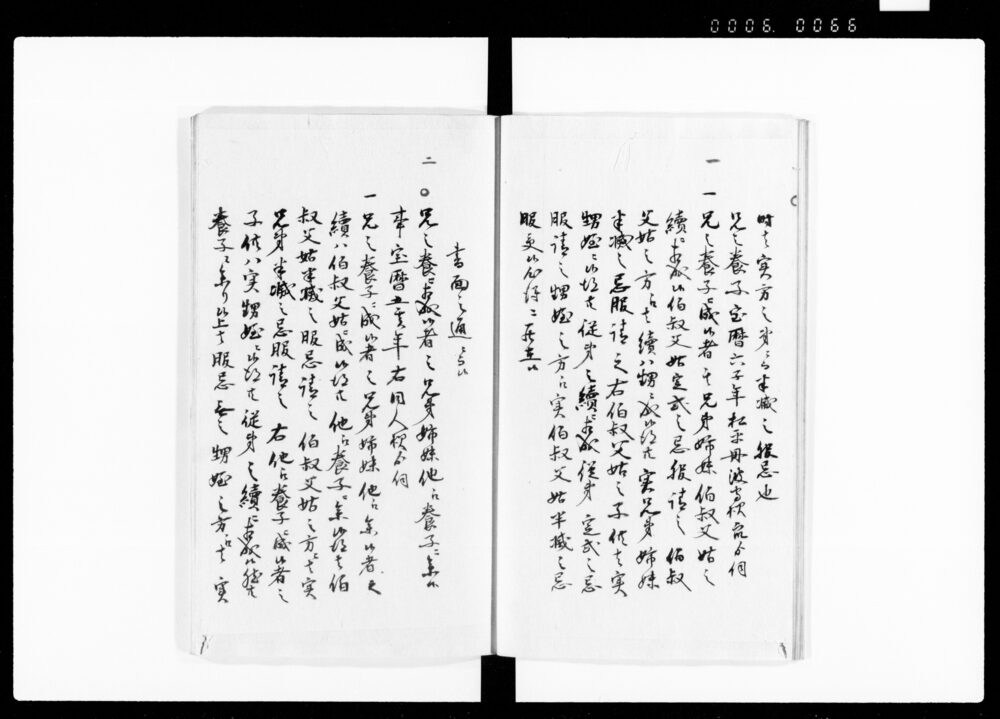 0006. 0066
時は実方之弟ニ而半減之服忌也
兄之養子宝暦六子年松平丹波守様
一 一兄之養子ニ成候者其兄弟姉妹伯叔父姑之
続ニ相成候伯叔父姑定式之忌服請之伯叔
父姑之方ニ而は続ハ甥ニ成候得共実兄弟姉妹
半減之忌服請之右伯叔父姑之子供は実
甥姪ニ候得共従弟之続ニ相成従弟定式之忌
服請之甥姪之方ニ而実伯叔父姑半減之忌
服受候心得ニ罷在候
書面之通ニ而候
二 〇兄之養ニ相成候者之兄弟姉妹他江養子ニ参候
事宝暦五亥年右同人様
一兄之養子ニ成候者之兄弟姉妹他江参候者之
続ハ伯叔父姑ニ成候得共他江養子ニ参候得は伯
叔父姑半減之服忌請之伯叔父姑之方ニ而は実
兄弟半減之忌服請之右他江養子ニ成候者之
子供ハ実甥姪ニ候得共従弟之続ニ相成候得共
養子ニ参り候上は服忌無之甥姪之方ニ而は実